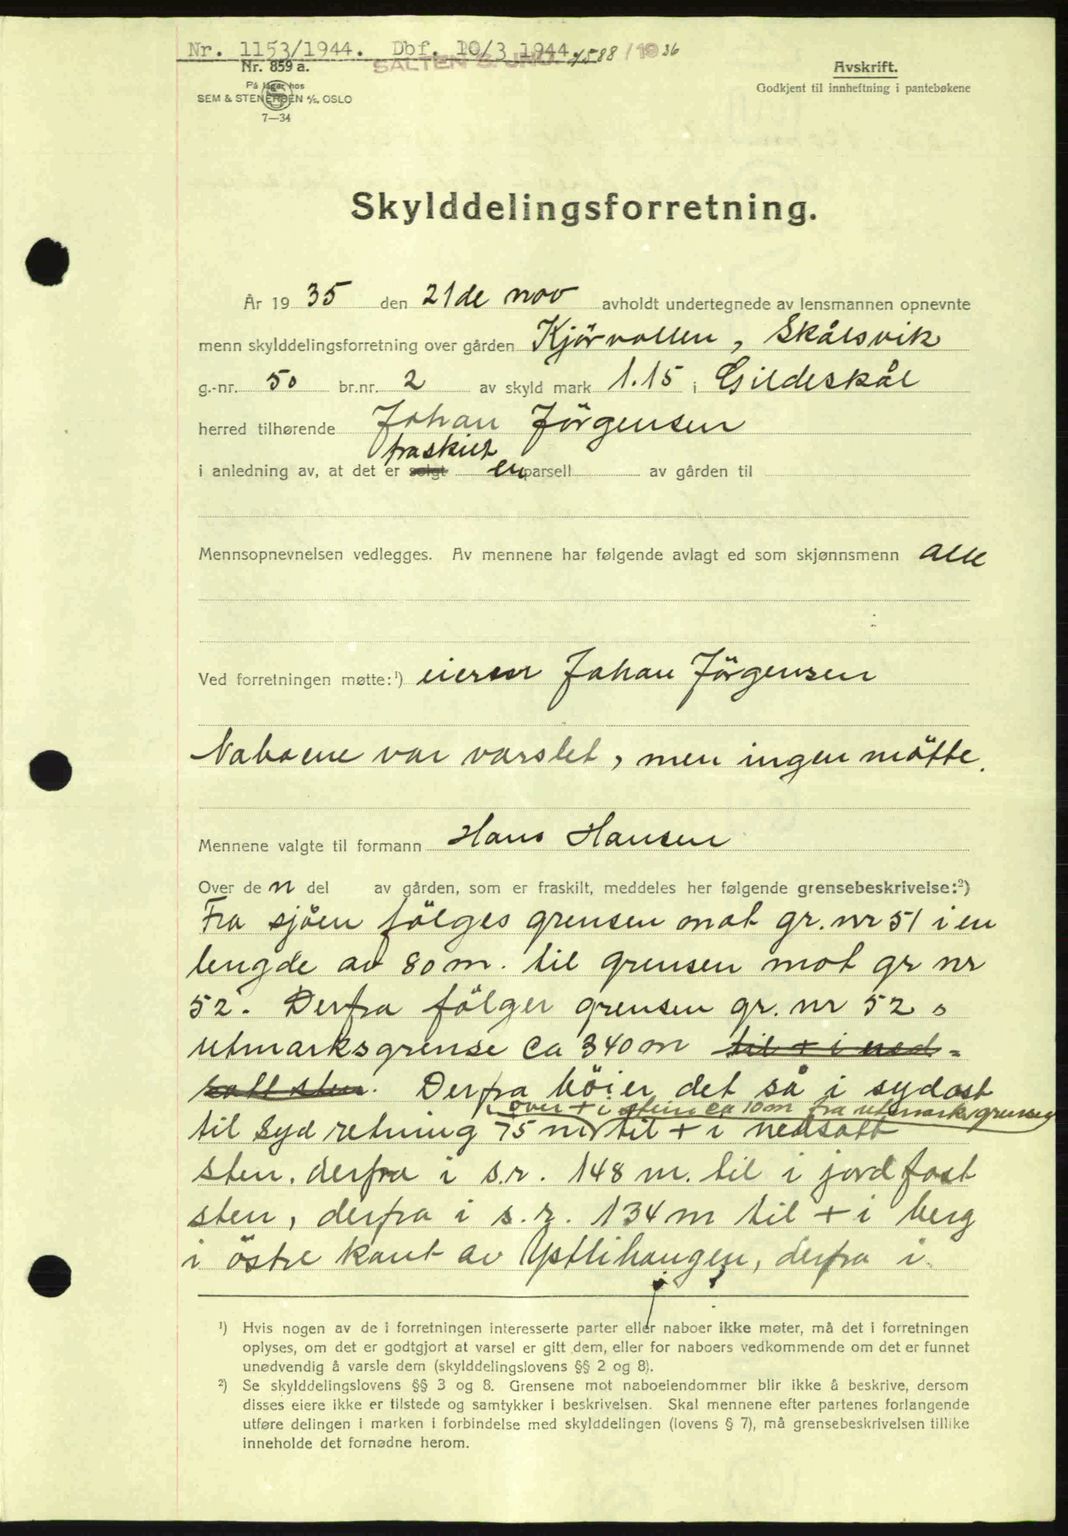 Nr. 1153/1944. Dbf. 10/3 1944.
SALTEN S. JNO. 1588/1936
Nr. 859 a.
På lager hos
SEM & STENERSEN A/S. OSLO
7—34
Avskrift.
Godkjent til innheftning i pantebøkene
Skylddelingsforretning.
År 19 35 den 21de nov avholdt undertegnede av lensmannen opnevnte
menn skylddelingsforretning over gården Kjörvollen, Skålsvik
g.-nr. 50 br.nr. 2 av skyld mark 1.15 i Gildeskål
herred tilhørende Johan Jörgensen
fraskilt
i anledning av, at det er solgt en parsell av gården til
Mennsopnevnelsen vedlegges. Av mennene har følgende avlagt ed som skjønnsmenn alle
Ved forretningen møtte:¹) eieren Johan Jörgensen
Naboene var varslet, men ingen mötte.
Mennene valgte til formann Hans Hansen
Over de n del av gården, som er fraskilt, meddeles her følgende grensebeskrivelse:²)
Fra sjöen fölges grensen mot gr. nr 51 i en
lengde av 80 m. til grensen mot gr nr
52. Derfra fölger grensen gr. nr 52 s
utmarksgrense ca 340 m til + i ned-
satt sten. Derfra böier det så i sydost
over + i stein ca 10 m fra utmarksgrensen
til syd retning 75 m til + i nedsatt
sten, derfra i s.r. 148 m. til i jordfast
sten, derfra i s.r. 134 m til + i berg
i östre kant av Yttlihaugen, derfra i
¹) Hvis nogen av de i forretningen interesserte parter eller naboer ikke møter, må det i forretningen
oplyses, om det er godtgjort at varsel er gitt dem, eller for naboers vedkommende om det er funnet
unødvendig å varsle dem (skylddelingslovens §§ 2 og 8).
²) Se skylddelingslovens §§ 3 og 8. Grensene mot naboeiendommer blir ikke å beskrive, dersom
disses eiere ikke er tilstede og samtykker i beskrivelsen. Skal mennene efter partenes forlangende
utføre delingen i marken i forbindelse med skylddelingen (lovens § 7), må grensebeskrivelsen tillike
inneholde det fornødne herom.